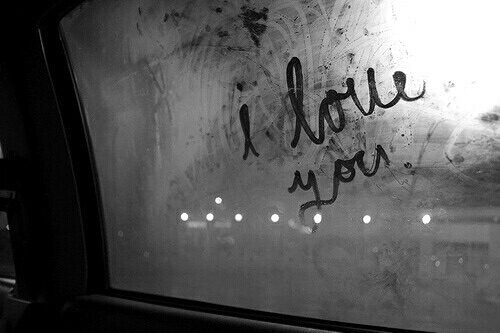 i love
you.